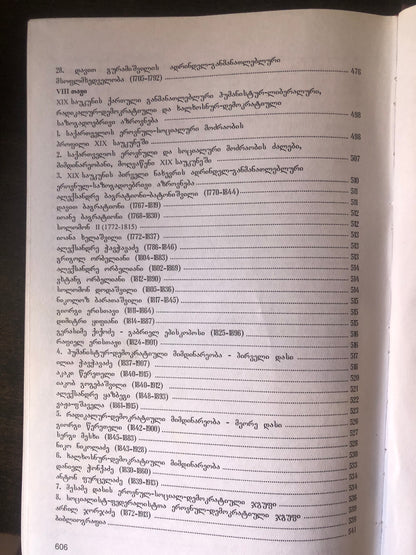 28. დავით გურამიშვილის ადრინდელ-განმანათლებლური
მსოფლმხედველობა (1705-1792) 478
VIII თავი
XIX საუკუნის ქართული განმანათლებლური ჰუმანისტურ-ლიბერალური,
რადიკალურ-დემოკრატიული და ხალხოსნურ-დემოკრატიული
საზოგადოებრივი აზროვნება 498
1. საქართველოს ეროვნულ-სოციალური მოძრაობის
პროფილი XIX საუკუნეში 498
2. საქართველოს ეროვნული და სოციალური მოძრაობის ძალები,
მიმდინარეობანი, მოღვაწენი XIX საუკუნეში 507
3. XIX საუკუნის პირველი ნახევრის ადრინდელ-განმანათლებლური
ეროვნულ-საზოგადოებრივი აზროვნება 510
ალექსანდრე ბაგრატიონი-ბატონიშვილი (1770-1844) 511
დავით ბაგრატიონი (1767-1819) 511
იოანე ბაგრატიონი (1768-1830) 512
სოლომონ II (1772-1815) 512
იოანა ხელაშვილი (1772-1837) 513
ალექსანდრე ჭავჭავაძე (1786-1846) 513
გრიგოლ ორბელიანი (1804-1883) 513
ალექსანდრე ორბელიანი (1802-1869) 513
ვახტანგ ორბელიანი (1812-1890) 514
სოლომონ დოდაშვილი (1805-1836) 514
ნიკოლოზ ბარათაშვილი (1817-1845) 514
გიორგი ერისთავი (1811-1864) 514
დიმიტრი ყიფიანი (1814-1887) 515
გერასიმე ქიქოძე - გაბრიელ ეპისკოპოსი (1825-1896) 515
რაფიელ ერისთავი (1824-1901) 516
4. ჰუმანისტურ-დემოკრატიული მიმდინარეობა - პირველი დასი 517
ილია ჭავჭავაძე (1837-1907) 518
აკაკი წერეთელი (1840-1915) 520
იაკობ გოგებაშვილი (1840-1912) 521
ალექსანდრე ყაზბეგი (1848-1893) 522
ვაჟა-ფშაველა (1861-1915) 523
5. რადიკალურ-დემოკრატიული მიმდინარეობა - მეორე დასი 526
გიორგი წერეთელი (1842-1900) 527
სერგი მესხი (1845-1883) 529
ნიკო ნიკოლაძე (1843-1928) 530
6. ხალხოსნურ-დემოკრატიული მიმდინარეობა 533
დანიელ ჭონქაძე (1830-1860) 534
ანტონ ფურცელაძე (1839-1913) 535
7. მესამე დასის ეროვნულ-სოციალ-დემოკრატიული ჯგუფი
8. სოციალისტ-ფედერალისტთა ეროვნულ-დემოკრატიული ჯგუფი
არჩილ ჯორჯაძე (1872-1913) 539
ბიბლიოგრაფია 541
606